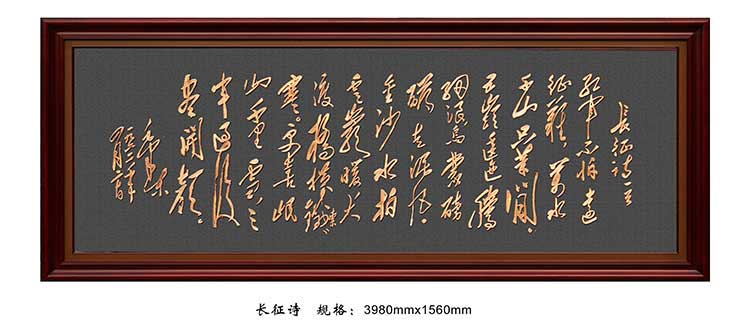 长征诗一首
红军不怕远
征难，万水
千山只等闲。
五岭逶迤腾
细浪，乌蒙磅
礴走泥丸。
金沙水拍
云崖暖，大
渡桥横铁索
寒。更喜岷
山千里雪，三
军过后
尽开颜。
毛泽东
长征诗 规格：3980mmx1560mm